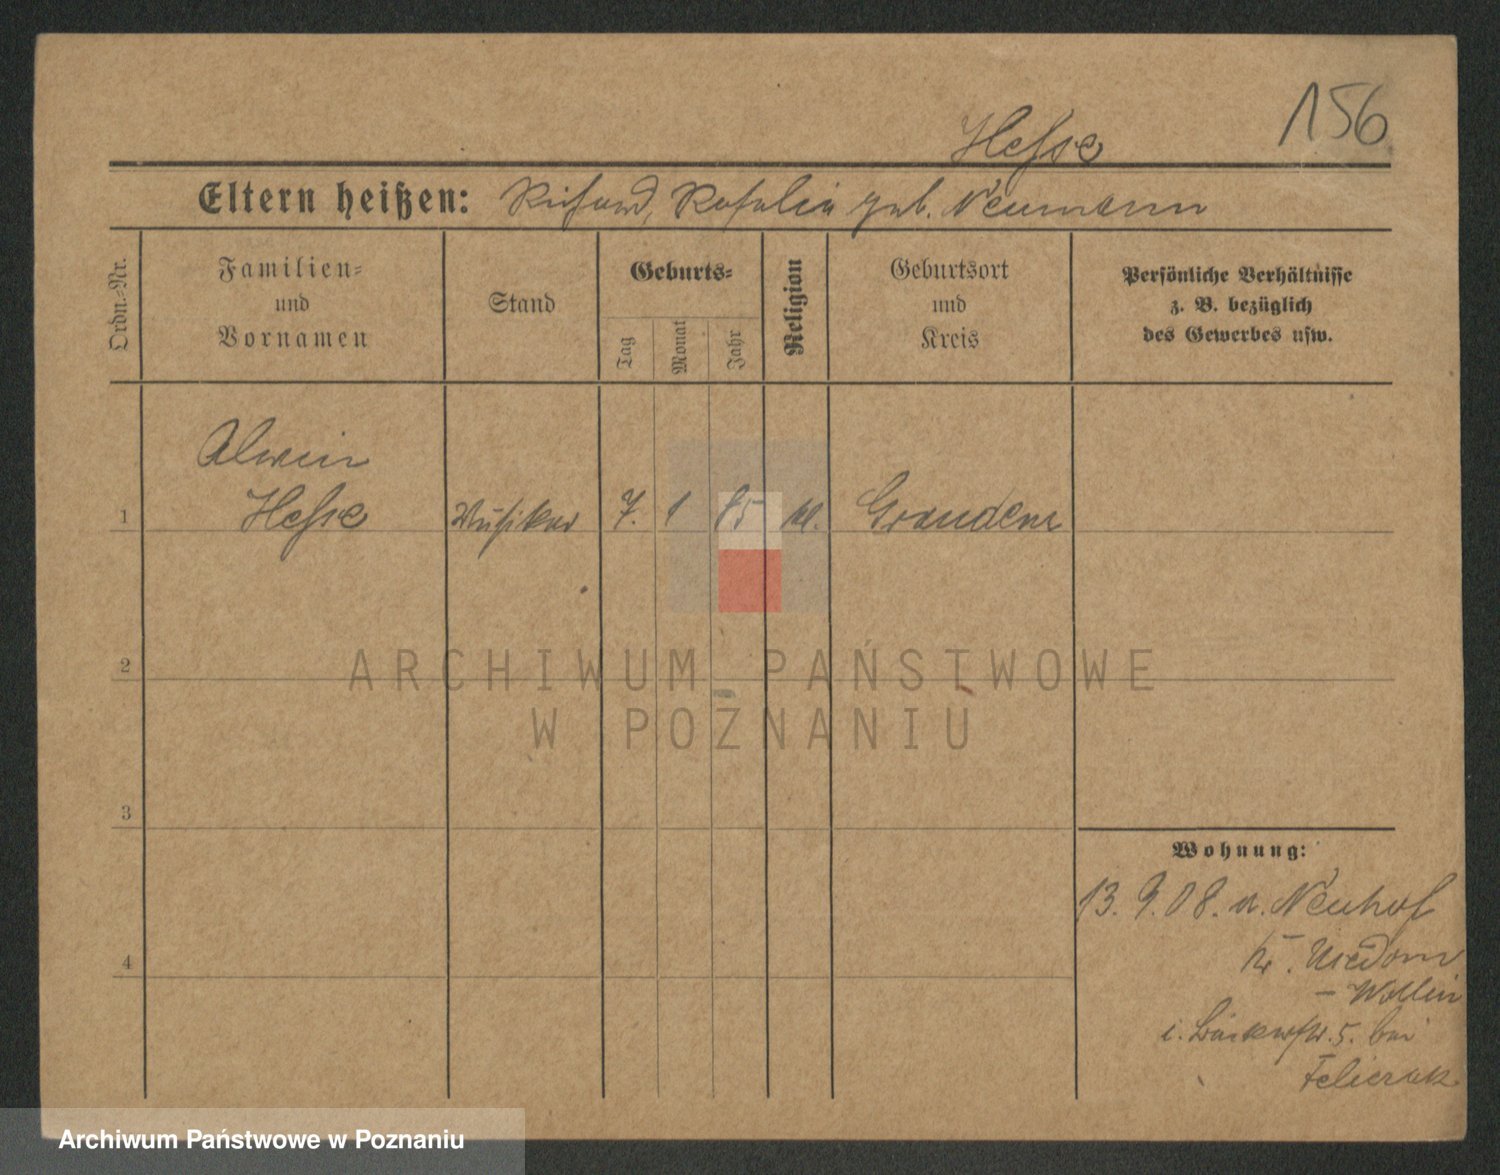 156
Hesse
Eltern heißen: Richard, Rosalie geb. Neumann
Ordn.-Nr.
Familien- und Vornamen
Stand
Geburts-
Tag
Monat
Jahr
Religion
Geburtsort und Kreis
Persönliche Verhältnisse
z. B. bezüglich
des Gewerbes usw.
Alwin
1 Hesse Musiker 7. 1 85 Graudenz
2
3
4
Wohnung:
13. 9. 08. n. Neuhof
Kr. Usedom
– Wollin
i. Bäckerstr. 5. bei
ARCHIWUM PAŃSTWOWE
W POZNANIU
Archiwum Państwowe w Poznaniu